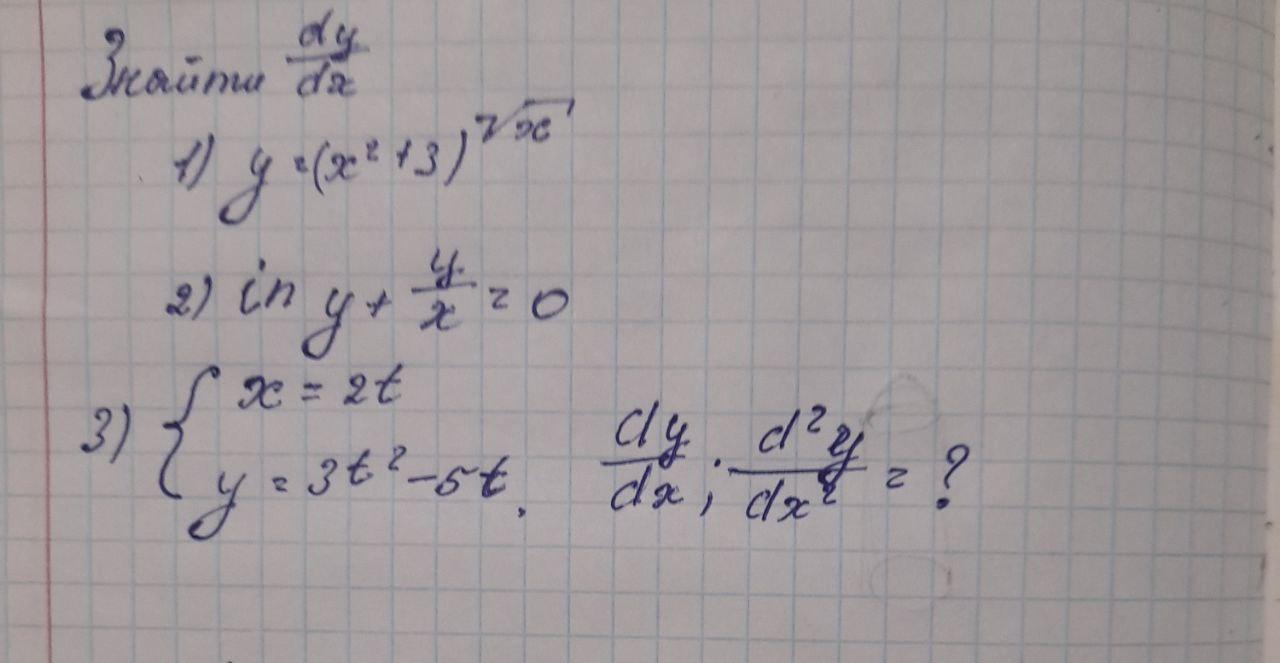 Знайти dy/dx
1) y = (x² + 3)^√x
2) ln y + y/x = 0
3) { x = 2t
y = 3t² - 5t. dy/dx; d²y/dx² = ?